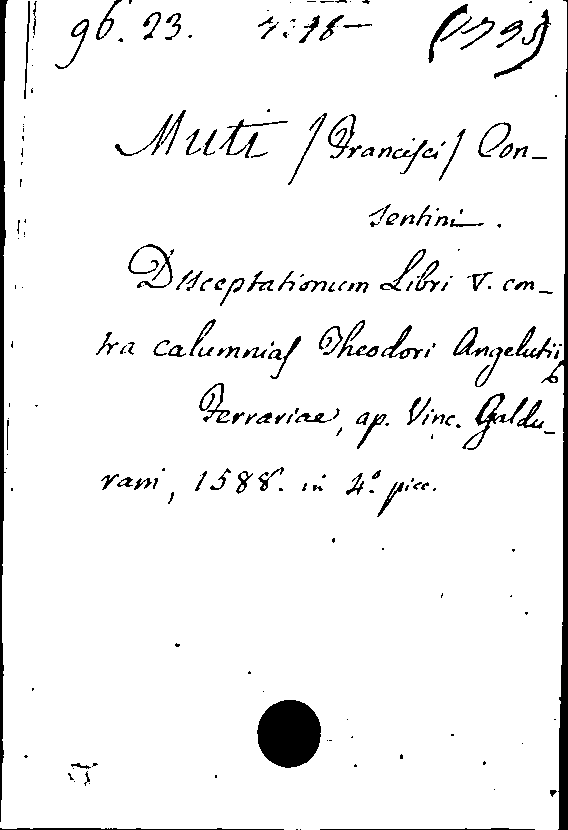 96. 23.
Muti /Francisci/ Con-
sentini.
Disceptationum Libri V. con-
tra calumnias Theodori Angelutii
Ferrariae, ap. Vinc. Galdu-
rani, 1588. in 4.° picc.